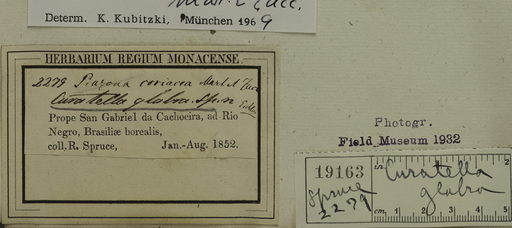 Mart. & Zucc.
Determ. K. Kubitzki, München 1969
HERBARIUM REGIUM MONACENSE.
2279 Piazona coriacea Mart. et Zucc
Curatella glabra. Sp. n
Prope San Gabriel da Cachoeira, ad Rio
Negro, Brasiliæ borealis,
coll. R. Spruce, Jan.-Aug. 1852.
Photogr.
Field Museum 1932
19163
Spruce
2279
in. Curatella 2
glabra
cm. 1 2 3 4 5